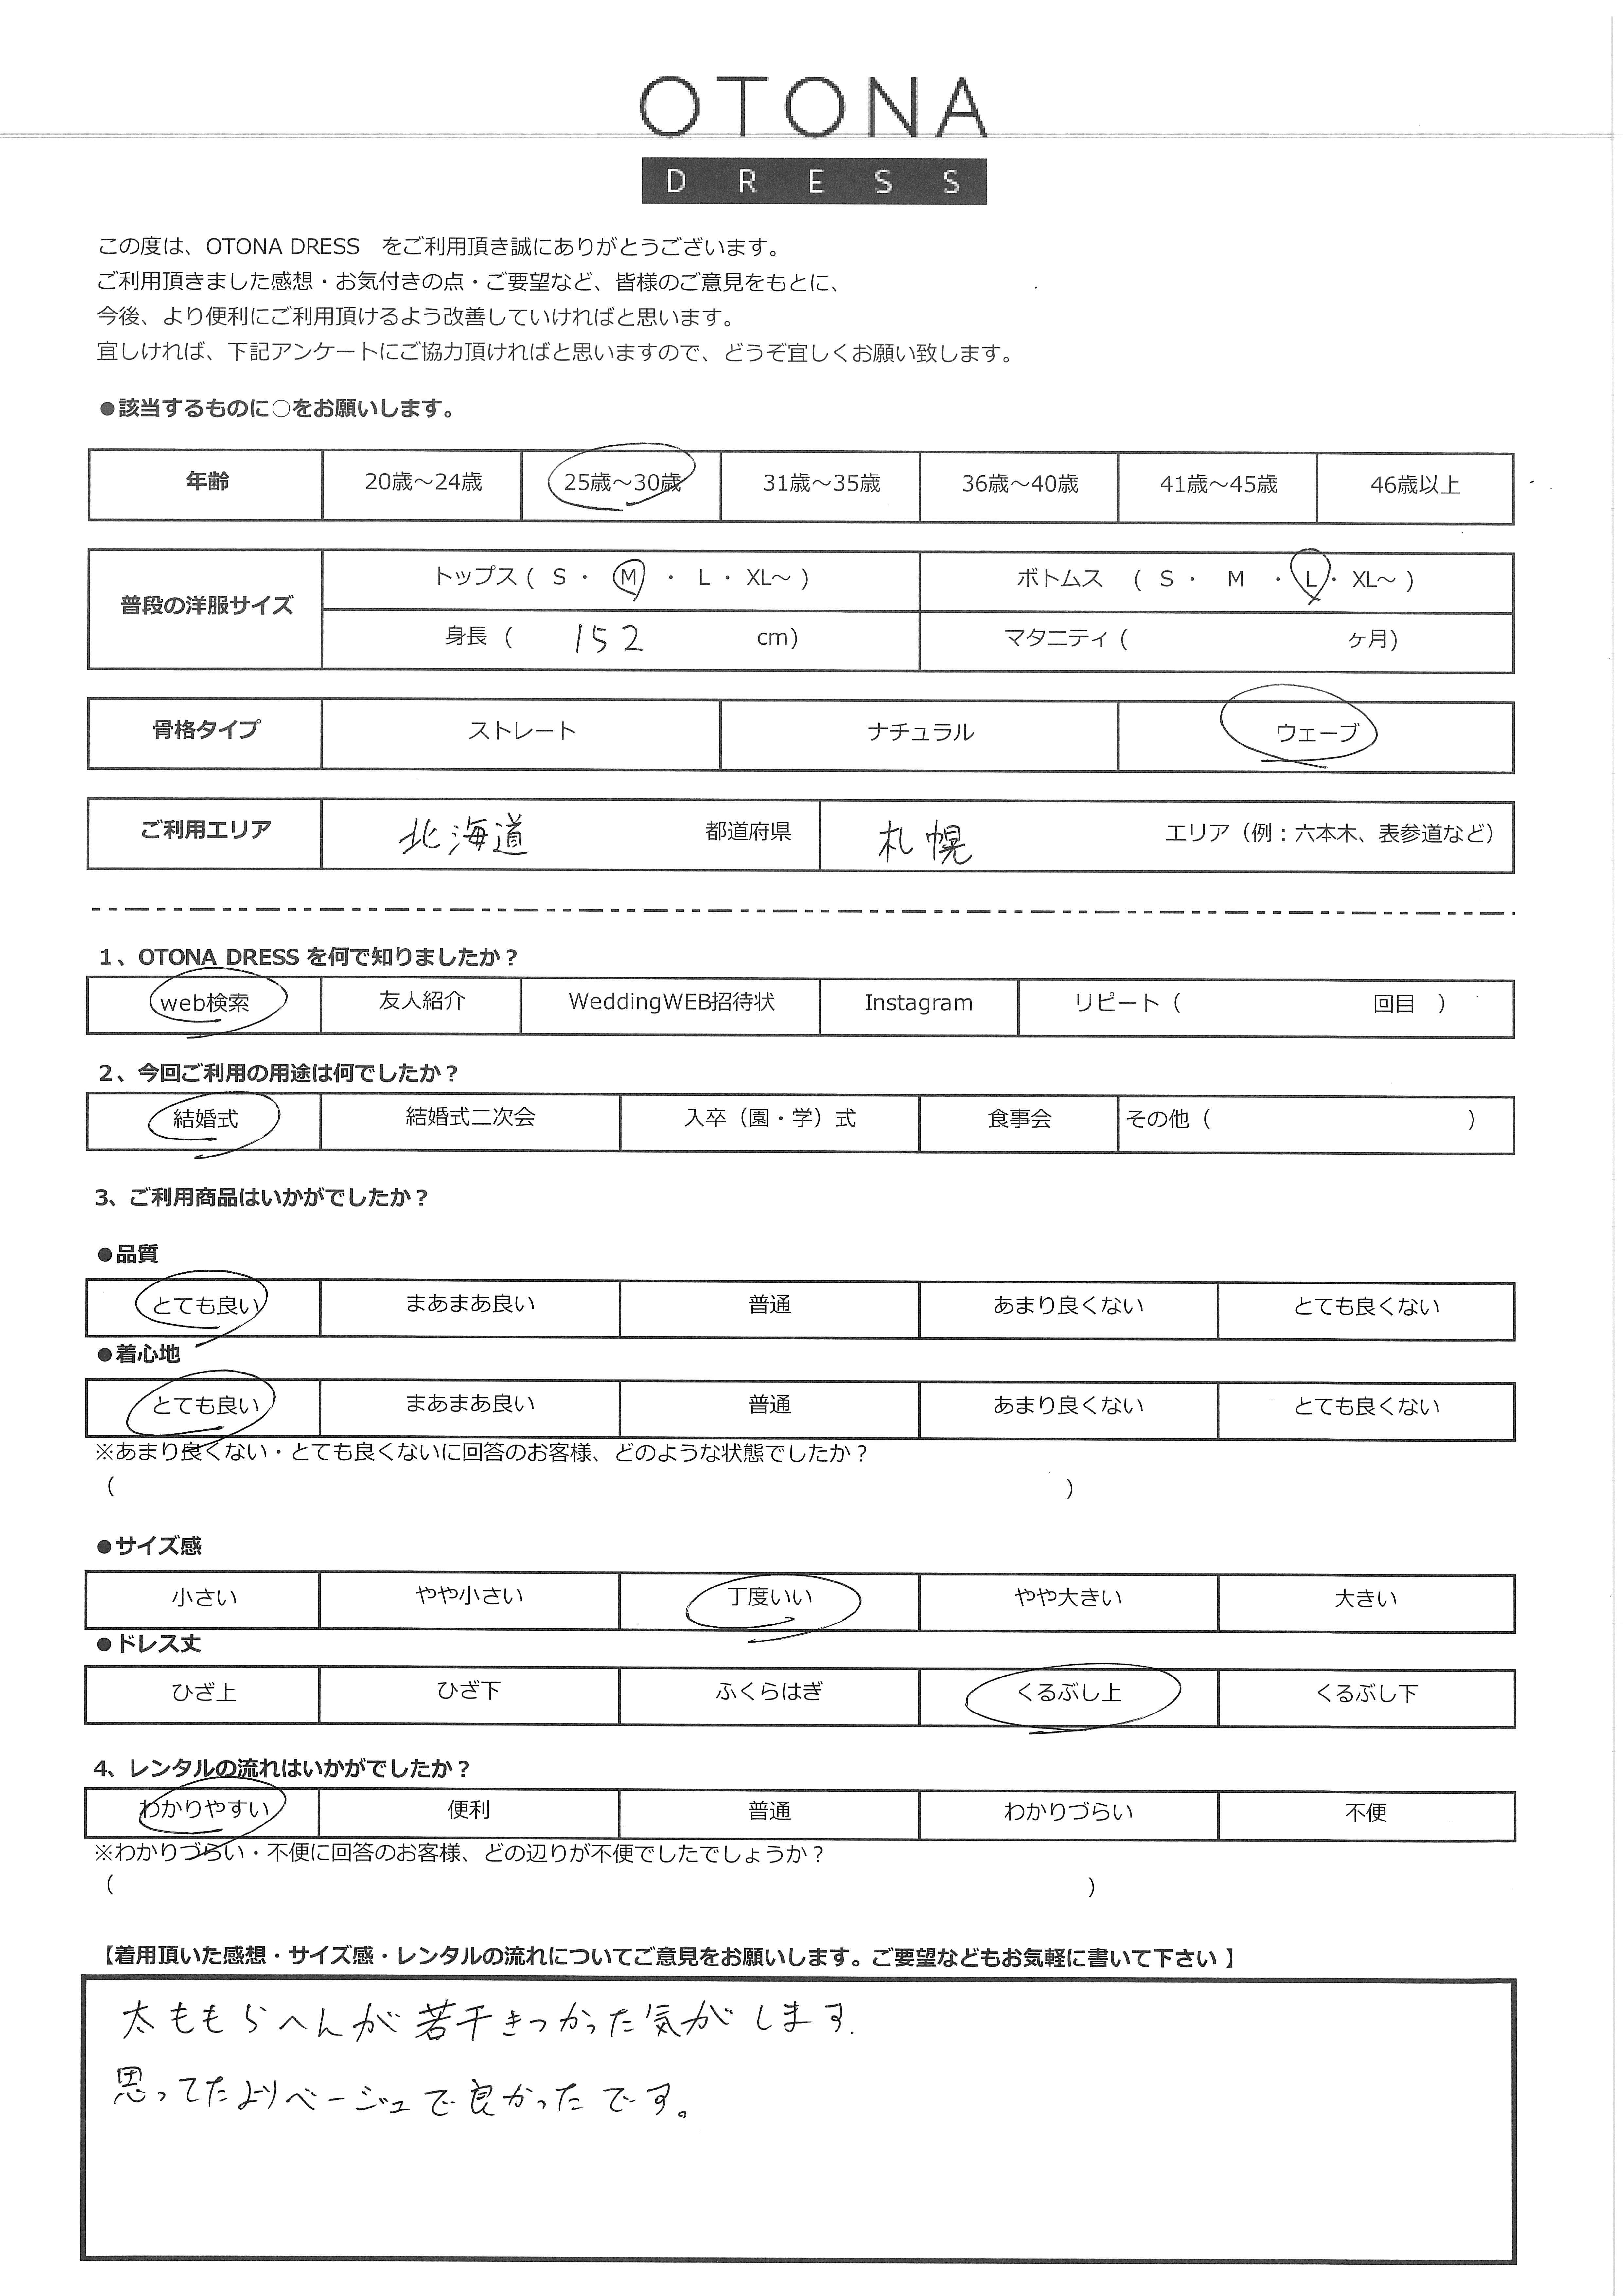 OTONA
DRESS
この度は、OTONA DRESS をご利用頂き誠にありがとうございます。
ご利用頂きました感想・お気付きの点・ご要望など、皆様のご意見をもとに、
今後、より便利にご利用頂けるよう改善していければと思います。
宜しければ、下記アンケートにご協力頂ければと思いますので、どうぞ宜しくお願い致します。
●該当するものに○をお願いします。
年齢 20歳～24歳 25歳～30歳 31歳～35歳 36歳～40歳 41歳～45歳 46歳以上
普段の洋服サイズ
トップス ( S ・ M ・ L ・ XL～ ) ボトムス ( S ・ M ・ L ・ XL～ )
身長 ( 152 cm) マタニティ ( ヶ月)
骨格タイプ ストレート ナチュラル ウェーブ
ご利用エリア 北海道 都道府県 札幌 エリア（例：六本木、表参道など）
1、OTONA DRESS を何で知りましたか？
web検索 友人紹介 WeddingWEB招待状 Instagram リピート（ 回目 ）
2、今回ご利用の用途は何でしたか？
結婚式 結婚式二次会 入卒（園・学）式 食事会 その他（ ）
3、ご利用商品はいかがでしたか？
●品質
とても良い まあまあ良い 普通 あまり良くない とても良くない
●着心地
とても良い まあまあ良い 普通 あまり良くない とても良くない
※あまり良くない・とても良くないに回答のお客様、どのような状態でしたか？
（ ）
●サイズ感
小さい やや小さい 丁度いい やや大きい 大きい
●ドレス丈
ひざ上 ひざ下 ふくらはぎ くるぶし上 くるぶし下
4、レンタルの流れはいかがでしたか？
わかりやすい 便利 普通 わかりづらい 不便
※わかりづらい・不便に回答のお客様、どの辺りが不便でしたでしょうか？
（ ）
【着用頂いた感想・サイズ感・レンタルの流れについてご意見をお願いします。ご要望などもお気軽に書いて下さい 】
太ももらへんが若干きつかった気がします.
思ってたよりベージュで良かったです。